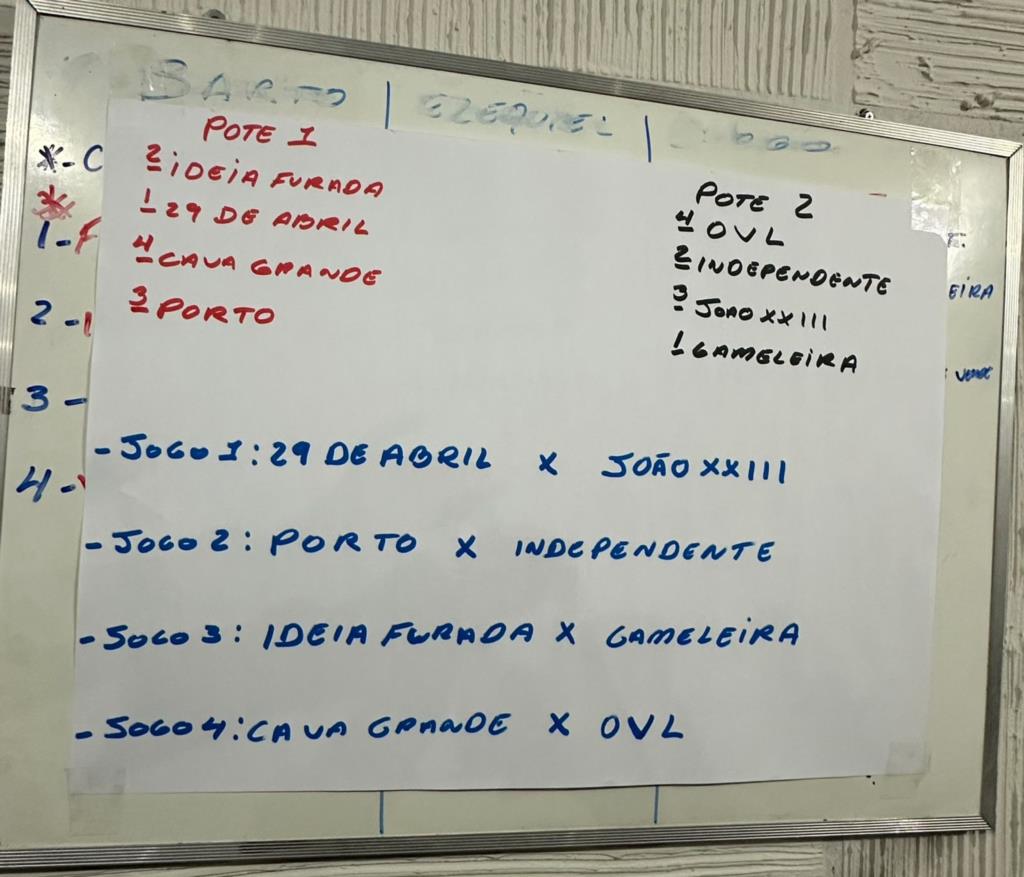 BARTO | EZEQUIEL |
POTE 1
2 IDEIA FURADA
1 29 DE ABRIL
4 CAVA GRANDE
3 PORTO
POTE 2
4 OVL
2 INDEPENDENTE
3 JOAO XXIII
1 GAMELEIRA
*- C
*
1-F
2-
3-
4-
EIRA
- JOGO 1: 29 DE ABRIL X JOÃO XXIII
- JOGO 2: PORTO X INDEPENDENTE
- JOGO 3: IDEIA FURADA X GAMELEIRA
- JOGO 4: CAVA GRANDE X OVL